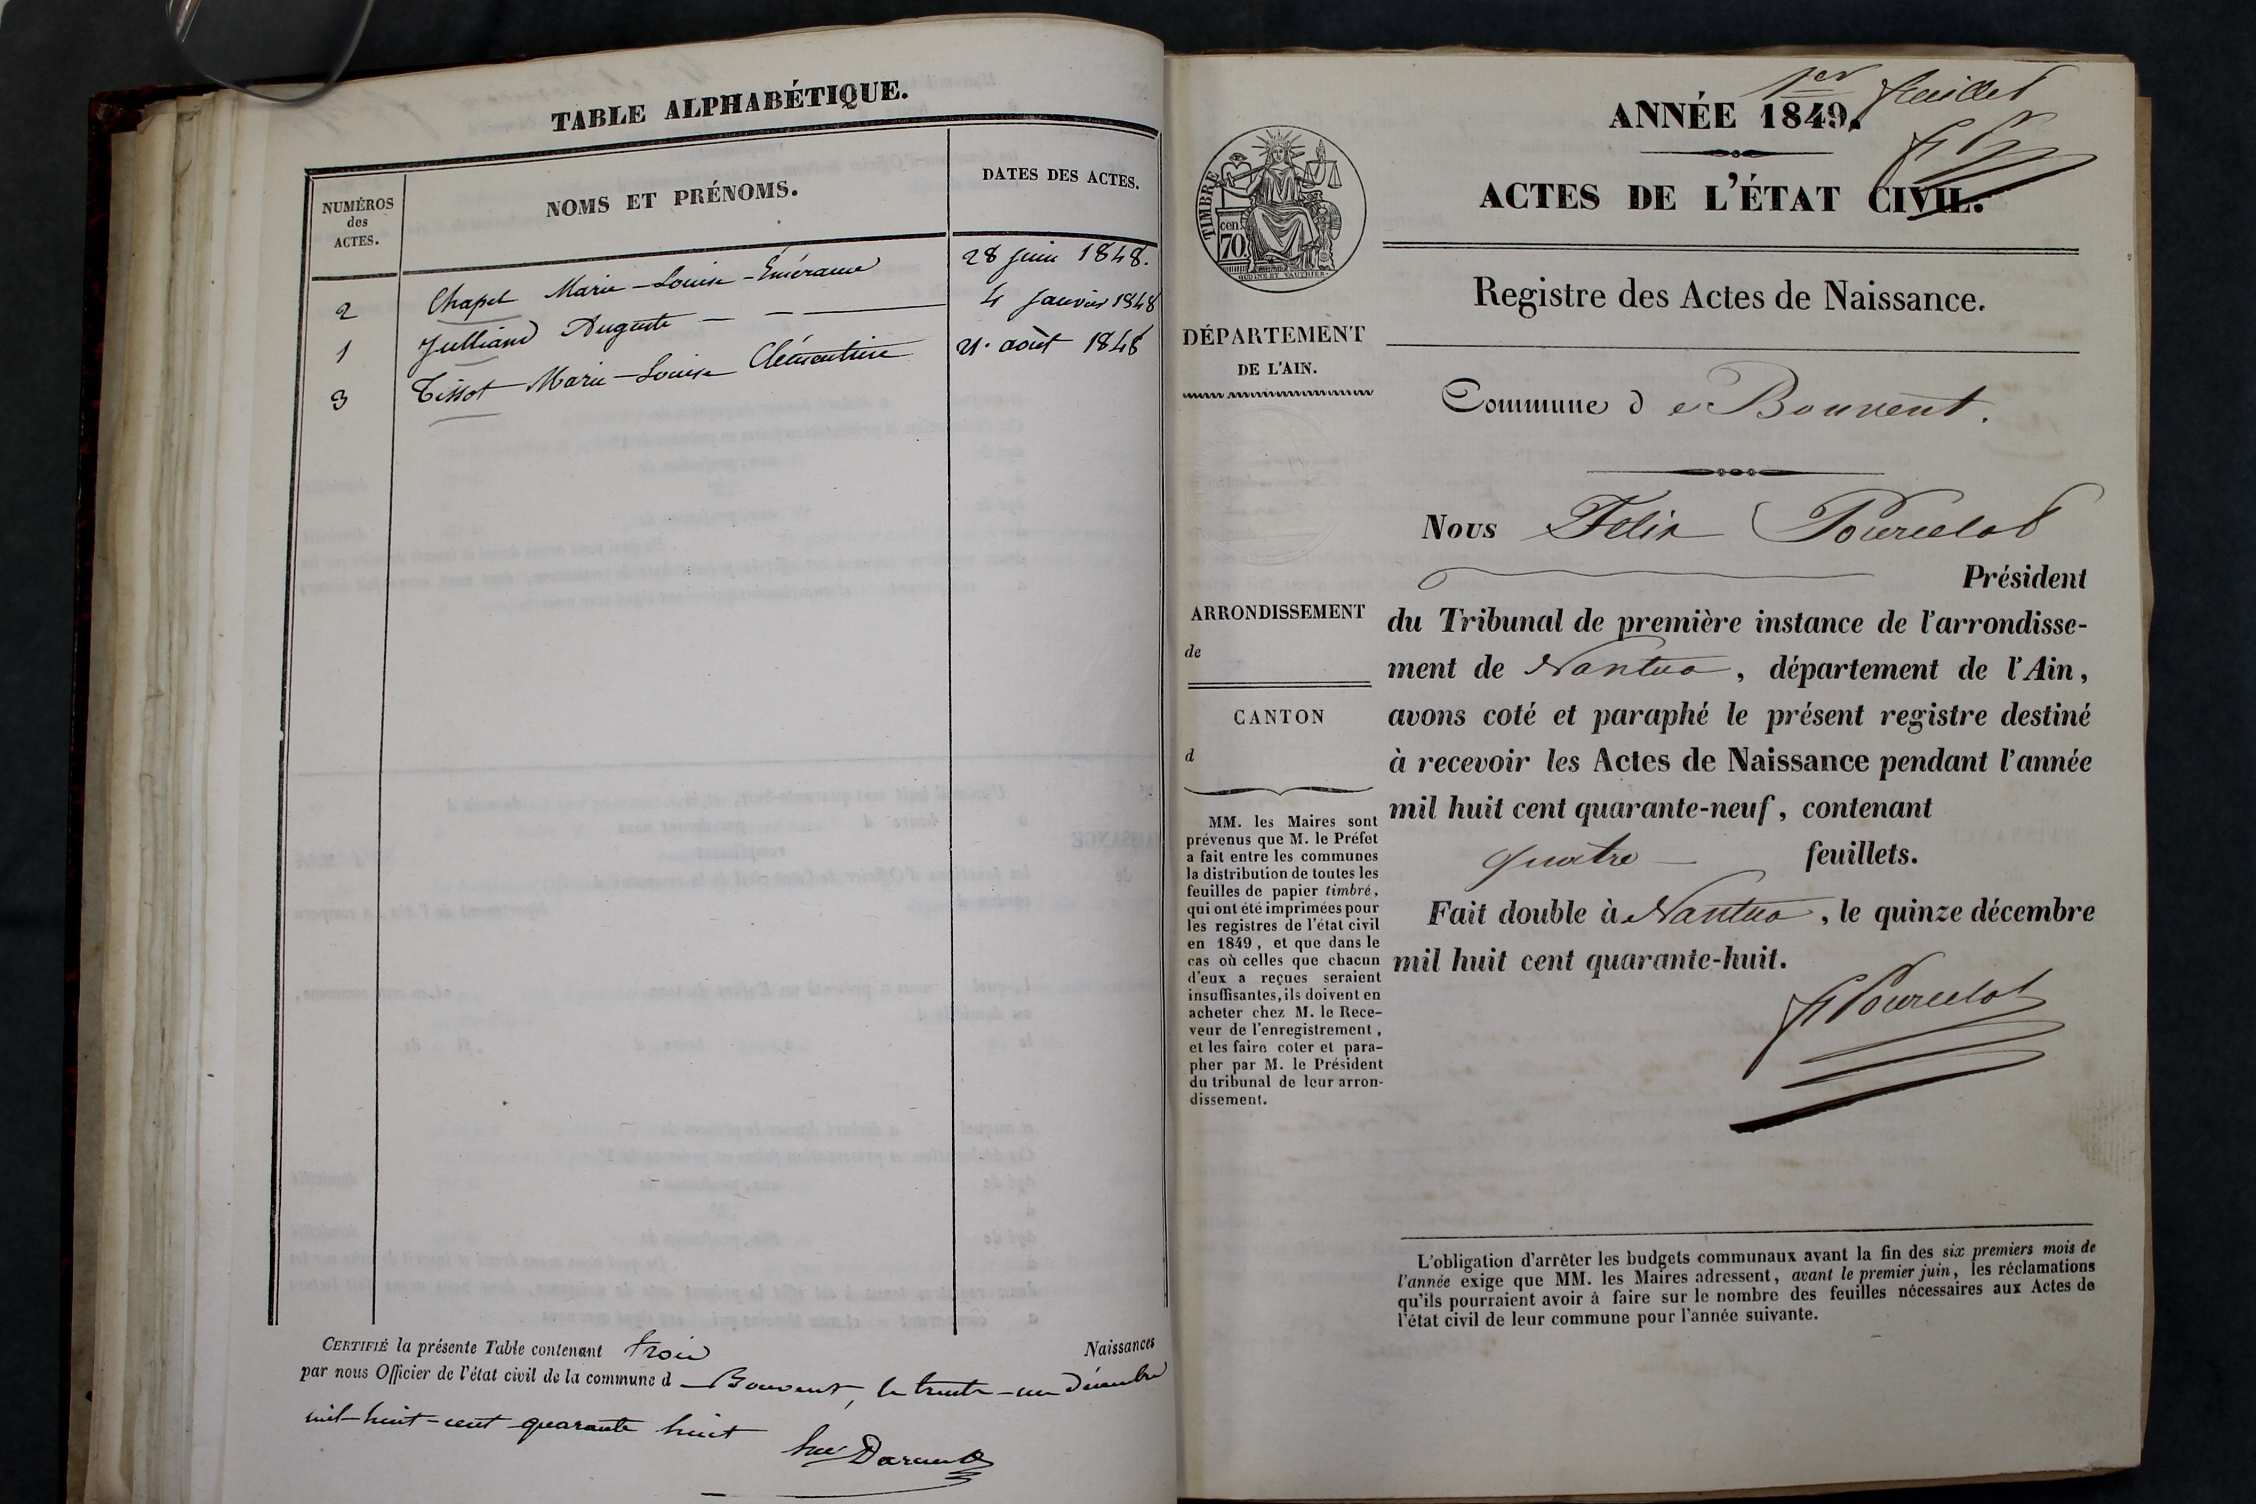 TABLE ALPHABÉTIQUE.
NUMÉROS
des
ACTES.
NOMS ET PRÉNOMS.
DATES DES ACTES.
2 Chapel Marie-Louise-Émérance 28 juin 1848.
1 Julliand Auguste 4 janvier 1848
3 Tissot Marie-Louise Clémentine 21. août 1848
CERTIFIÉ la présente Table contenant trois Naissances
par nous Officier de l'état civil de la commune d Bouvent, le trente-un décembre
mil-huit-cent quarante huit
1er feuillet
ANNÉE 1849.
ACTES DE L'ÉTAT CIVIL.
Registre des Actes de Naissance.
TIMBRE
cen.
70
DÉPARTEMENT
DE L'AIN.
Commune de Bouvent.
Nous Félix Pourcelot
Président
ARRONDISSEMENT
de
CANTON
d
du Tribunal de première instance de l'arrondisse-
ment de Nantua, département de l'Ain,
avons coté et paraphé le présent registre destiné
à recevoir les Actes de Naissance pendant l'année
mil huit cent quarante-neuf, contenant
quatre feuillets.
Fait double à Nantua, le quinze décembre
mil huit cent quarante-huit.
F Pourcelot
MM. les Maires sont
prévenus que M. le Préfet
a fait entre les communes
la distribution de toutes les
feuilles de papier timbré,
qui ont été imprimées pour
les registres de l'état civil
en 1849, et que dans le
cas où celles que chacun
d'eux a reçues seraient
insuffisantes, ils doivent en
acheter chez M. le Rece-
veur de l'enregistrement,
et les faire coter et para-
pher par M. le Président
du tribunal de leur arron-
dissement.
L'obligation d'arrêter les budgets communaux avant la fin des six premiers mois de
l'année exige que MM. les Maires adressent, avant le premier juin, les réclamations
qu'ils pourraient avoir à faire sur le nombre des feuilles nécessaires aux Actes de
l'état civil de leur commune pour l'année suivante.